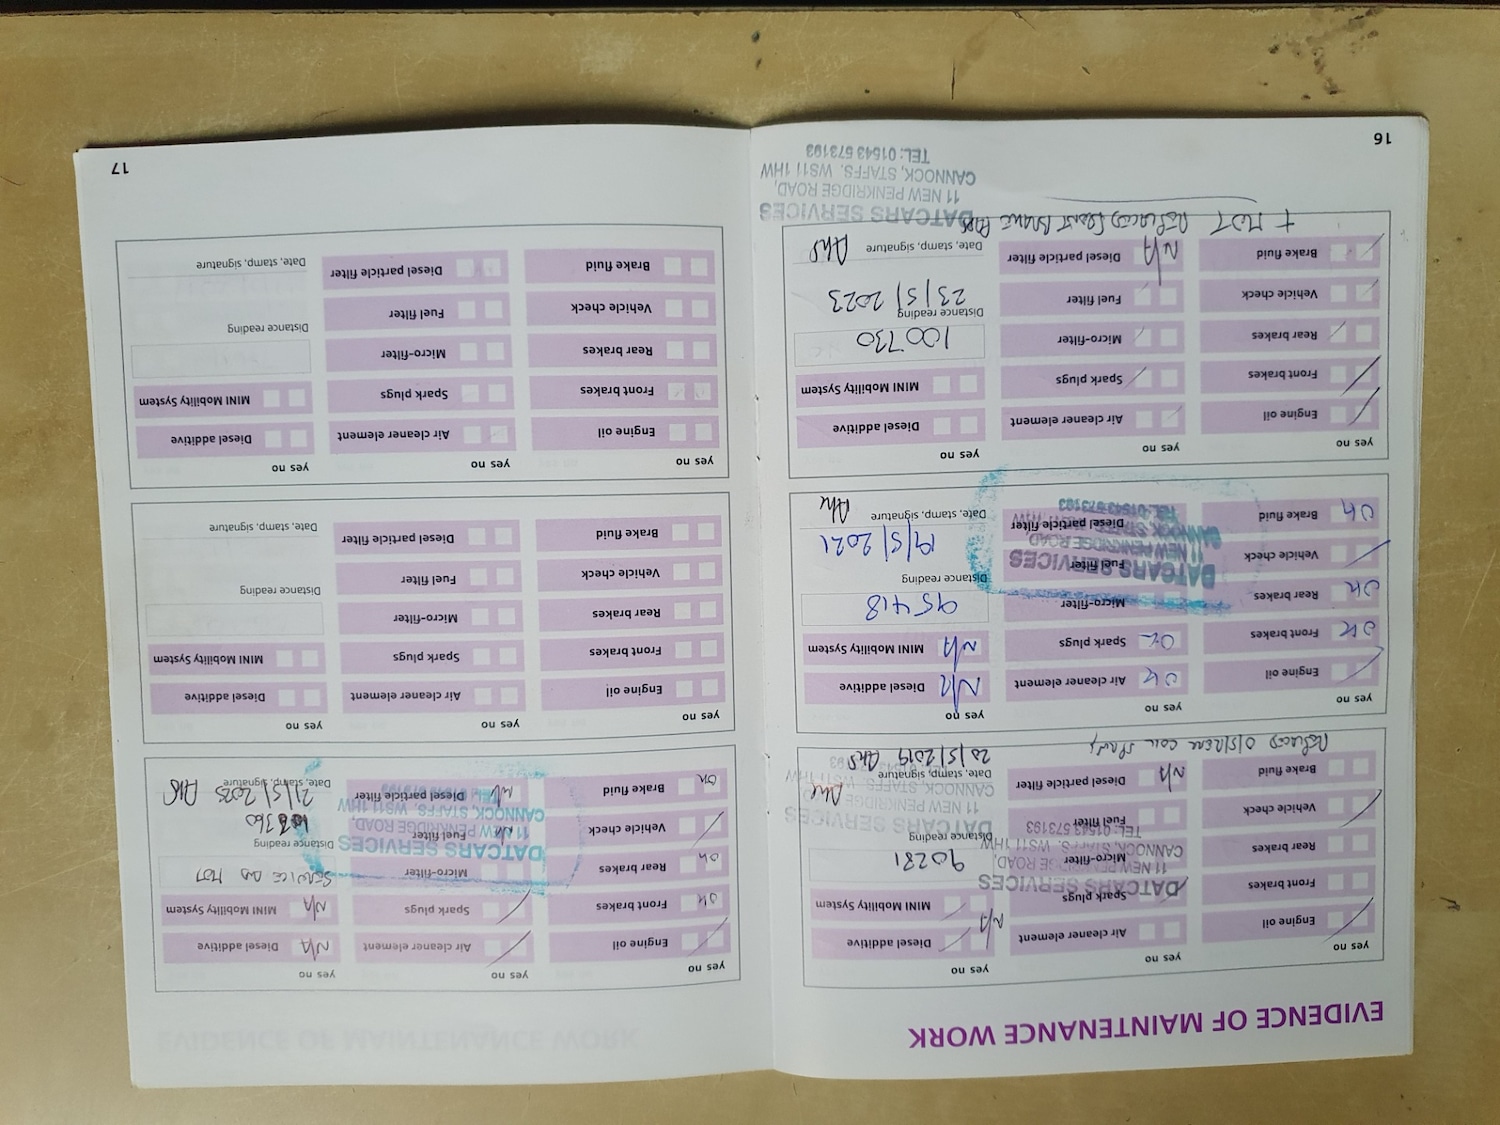 EVIDENCE OF MAINTENANCE WORK
yes no
yes no
yes no
Engine oil
Air cleaner element
Diesel additive
N/A
Front brakes
Spark plugs
MINI Mobility System
Rear brakes
Micro-filter
90281
Vehicle check
Fuel filter
Distance reading
Brake fluid
Diesel particle filter
N/A
Date, stamp, signature
20/5/2019
DATCARS SERVICES
11 NEW PENKRIDGE ROAD,
CANNOCK, STAFFS. WS11 1HW
TEL: 01543 573193
DATCARS SERVICES
11 NEW PENKRIDGE ROAD,
CANNOCK, STAFFS. WS11 1HW
REPLACED O/S/REAR COIL SPRING
yes no
yes no
yes no
Engine oil
Air cleaner element
OK
Diesel additive
N/A
Front brakes
OK
Spark plugs
OK
MINI Mobility System
N/A
Rear brakes
OK
Micro-filter
95418
Vehicle check
Fuel filter
Distance reading
Brake fluid
OK
Diesel particle filter
19/5/2021
Date, stamp, signature
DATCARS SERVICES
11 NEW PENKRIDGE ROAD
CANNOCK, STAFFS. WS11 1HW
TEL: 01543 573193
yes no
yes no
yes no
Engine oil
Air cleaner element
Diesel additive
Front brakes
Spark plugs
MINI Mobility System
Rear brakes
Micro-filter
100730
Vehicle check
Fuel filter
Distance reading
23/5/2023
Brake fluid
Diesel particle filter
N/A
Date, stamp, signature
+ MOT REPLACED FRONT BRAKE PADS
DATCARS SERVICES
11 NEW PENKRIDGE ROAD,
CANNOCK, STAFFS. WS11 1HW
TEL: 01543 573193
16
yes no
yes no
yes no
Engine oil
Air cleaner element
Diesel additive
N/A
Front brakes
OK
Spark plugs
MINI Mobility System
N/A
Rear brakes
OK
Micro-filter
SERVICE AND MOT
Vehicle check
Fuel filter
N/A
Distance reading
Brake fluid
OK
Diesel particle filter
N/A
21/5/2025
Date, stamp, signature
DATCARS SERVICES
11 NEW PENKRIDGE ROAD,
CANNOCK, STAFFS. WS11 1HW
yes no
yes no
yes no
Engine oil
Air cleaner element
Diesel additive
Front brakes
Spark plugs
MINI Mobility System
Rear brakes
Micro-filter
Vehicle check
Fuel filter
Distance reading
Brake fluid
Diesel particle filter
Date, stamp, signature
yes no
yes no
yes no
Engine oil
Air cleaner element
Diesel additive
Front brakes
Spark plugs
MINI Mobility System
Rear brakes
Micro-filter
Vehicle check
Fuel filter
Distance reading
Brake fluid
Diesel particle filter
Date, stamp, signature
17